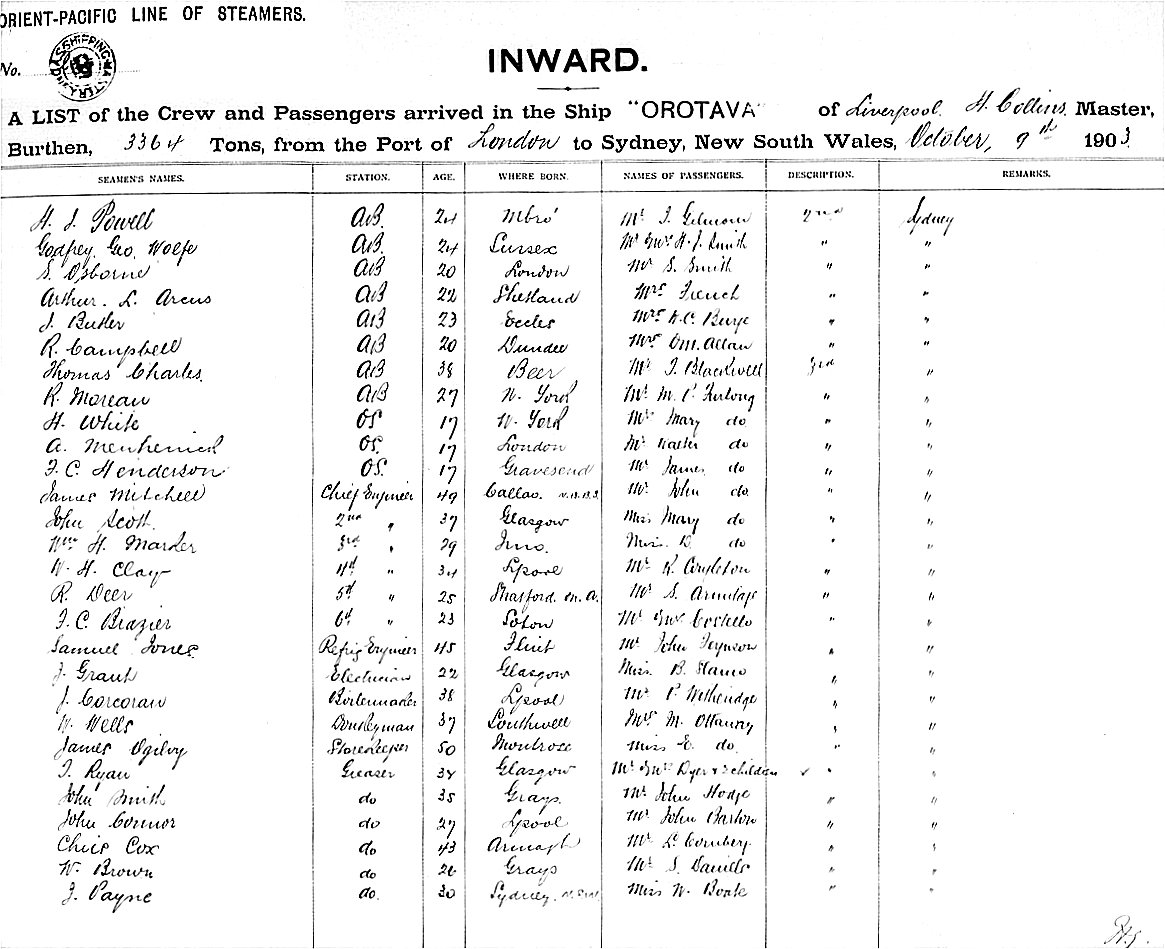 ORIENT-PACIFIC LINE OF STEAMERS.
No.
SHIPPING MASTER
INWARD.
A LIST of the Crew and Passengers arrived in the Ship "OROTAVA" of Liverpool H. Collins Master,
Burthen, 3364 Tons, from the Port of London to Sydney, New South Wales, October, 9th 1903
SEAMEN'S NAMES. STATION. AGE. WHERE BORN. NAMES OF PASSENGERS. DESCRIPTION. REMARKS.
H. J. Powell AB. 24 Mbro' Mr Gilmour 2nd Sydney
Godfrey Geo. Wolfe AB. 24 Sussex Mr & Mrs H. J. Smith " "
S. Osborne AB 20 London Mr S. Smith " "
Arthur. L. Arcus AB 22 Shetland Mrs French " "
J. Butler AB 23 Eccles Mrs " "
R. Campbell AB 20 Dundee Mrs Allan " "
Thomas Charles. AB 38 Beer Mr J. Blackwell 3rd "
R. Moreau AB 27 N. York Mr M. P. Furlong " "
H. White OS 17 N. York Mrs Mary do " "
A. Menhenick OS. 17 London Mr Walter do " "
F. C. Henderson OS. 17 Gravesend Mr James do " "
James Mitchell Chief Engineer 49 Callao. Mr John do " "
John Scott. 2nd " 37 Glasgow Miss Mary do " "
Wm H. Marder 3rd " 29 Miss. do " "
W. H. Clay 4th " 34 Lpool Mr " "
R. Deer 5th " 25 Stratford. Mr S. Armitage " "
F. C. Brazier 6th " 23 Soton Mr & Mrs Costello " "
Samuel Jones Refrig Engineer 45 Flint Mr John " "
J. Grant Electrician 22 Glasgow Miss. B. " "
J. Corcoran Boilermaker 38 Lpool Mr P. Witheridge " "
W. Wells Donkeyman 37 Southwell Mrs M. Ottaway " "
James Ogilvy Storekeeper 50 Montrose Miss E. do. " "
T. Ryan Greaser 34 Glasgow Mr & Mrs Dyer & 2 children " "
John Smith do 35 Grays. Mr John Hodge " "
John Connor do 27 Lpool Mr John Barton " "
Chris Cox do 43 Armagh Mr L. " "
W. Brown do 26 Grays Mr S. Daniells " "
J. Payne do. 30 Sydney. N.S.W. Miss W. " "